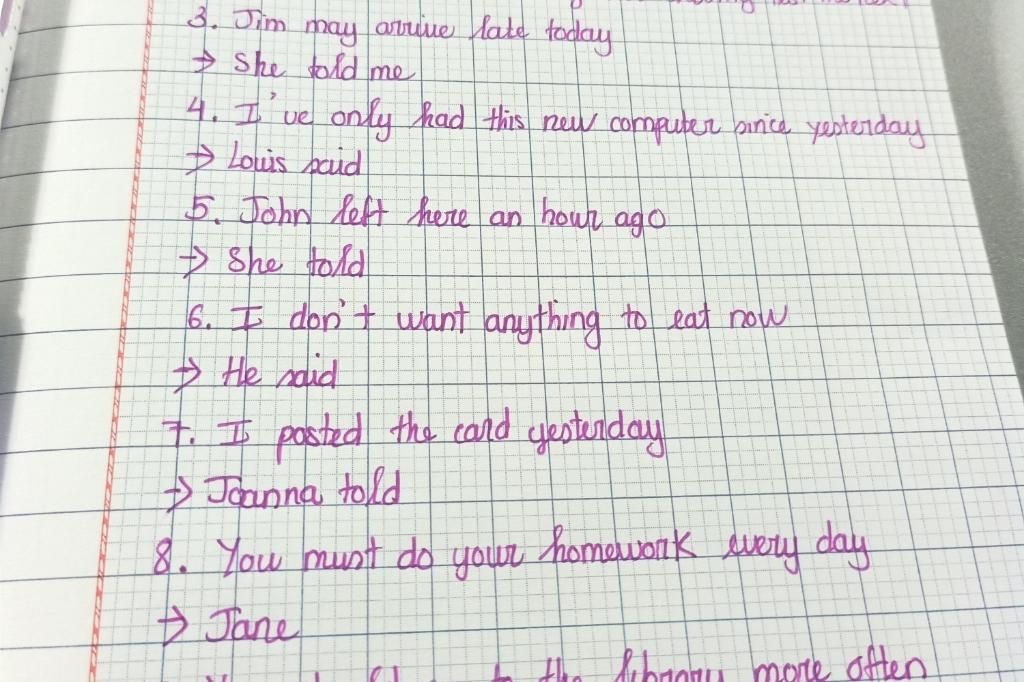 3. Jim may arrive late today
→ She told me
4. I've only had this new computer since yesterday
→ Louis said
5. John left here an hour ago
→ She told
6. I don't want anything to eat now
→ He said
7. I posted the card yesterday
→ Joanna told
8. You must do your homework every day
→ Jane
to the library more often